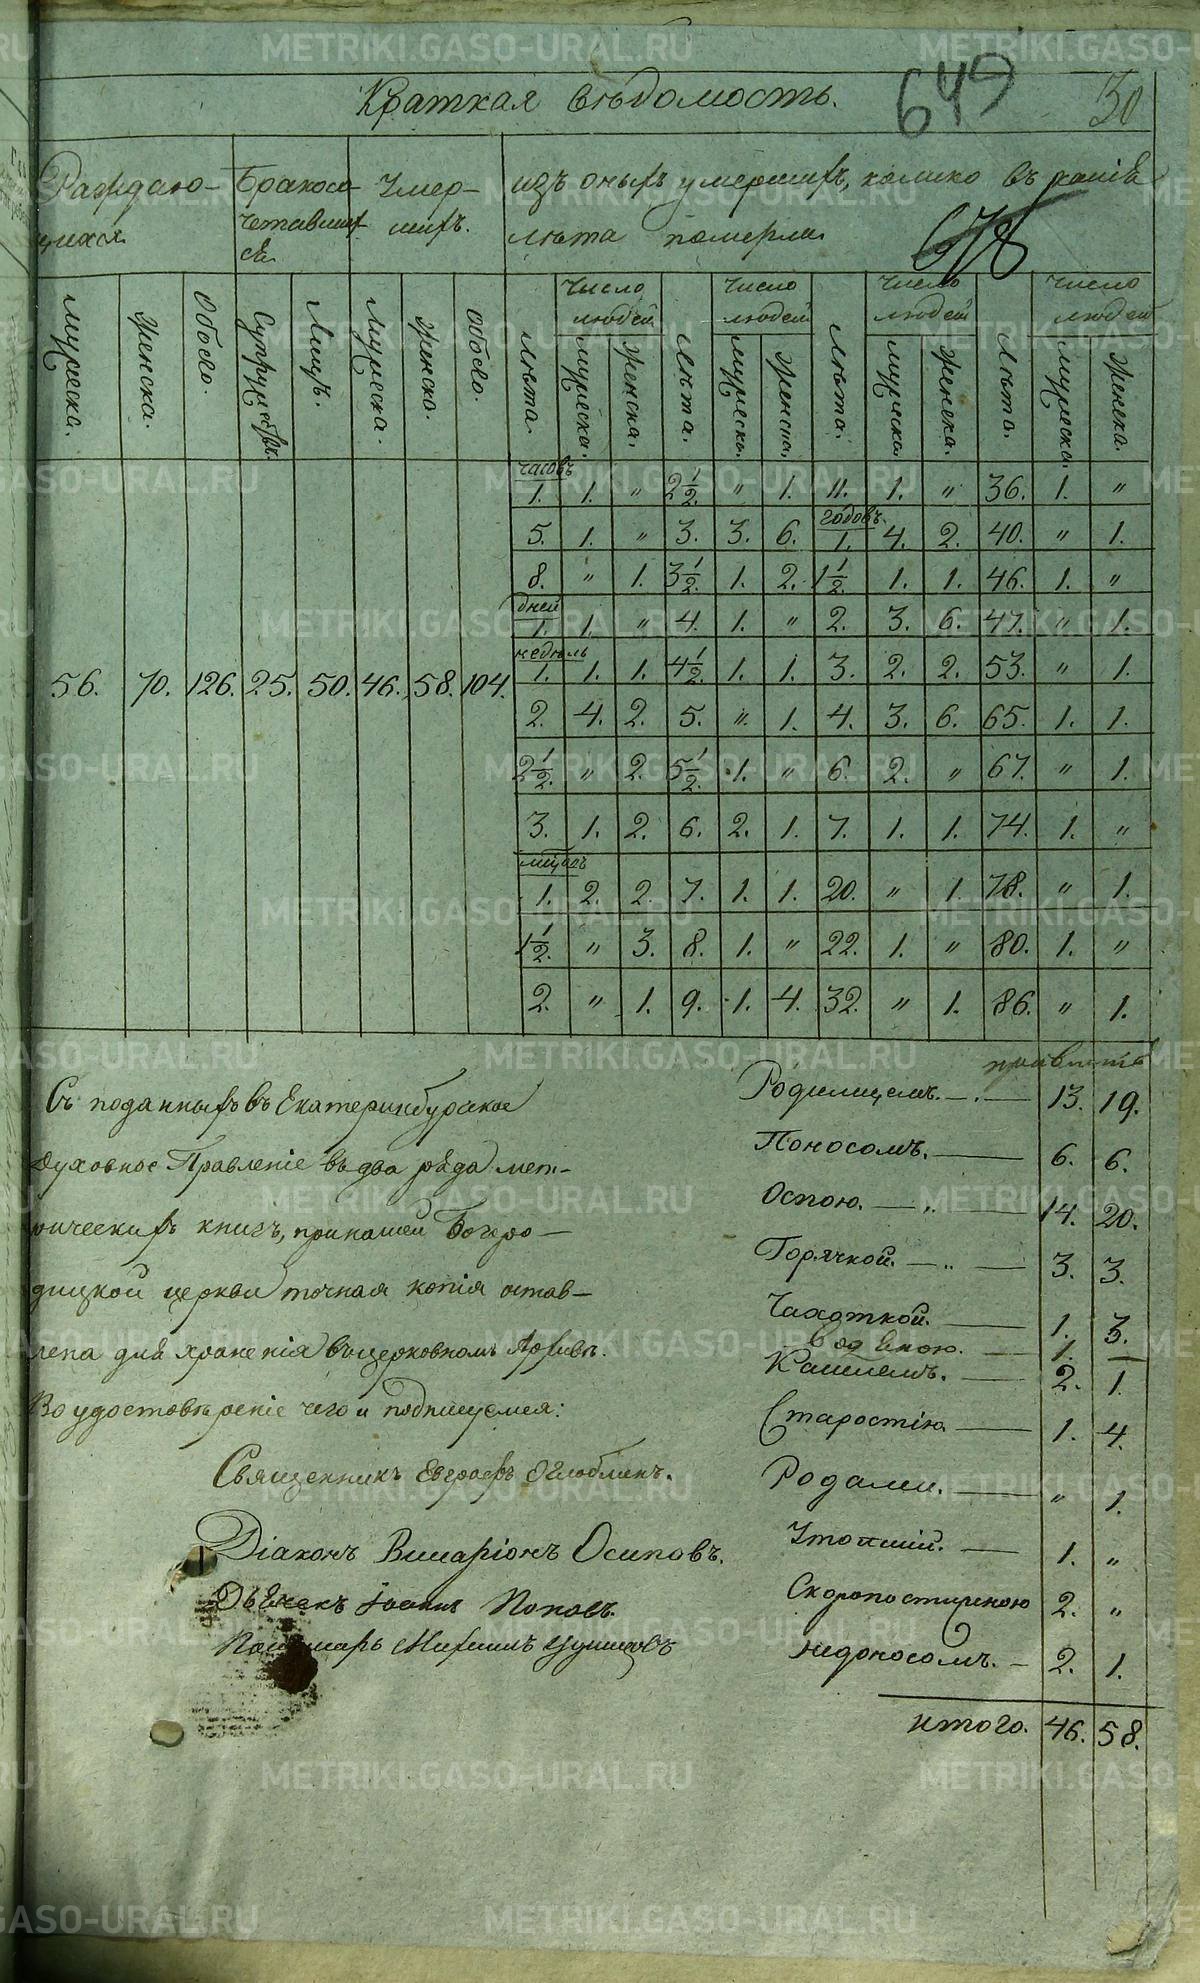 Краткая вѣдомость.
649
30
Раждаю-
щихся.
Бракосо-
четавших
ся.
Умер-
шихъ.
изъ оныхъ умершихъ, колико въ какіе
лѣта померли.
678
Мужеска.
Женска.
Обоего.
Супружествъ.
Лицъ.
Мужеска.
Женско.
Обоего.
Лѣта. Число людей Мужеска. Женска.
Лѣта. Число людей Мужеска. Женска.
Лѣта. Число людей Мужеска. Женска.
Лѣта. Число людей Мужеска. Женска.
часовъ
1. 1. " 2½. " 1. 11. 1. " 36. 1. "
годовъ.
5. 1. " 3. 3. 6. 1. 4. 2. 40. " 1.
8. " 1. 3½. 1. 2. 1½. 1. 1. 46. 1. "
дней
1. 1. " 4. 1. " 2. 3. 6. 47. " 1.
недѣль
1. 1. 1. 4½. 1. 1. 3. 2. 2. 53. " 1.
56. 70. 126. 25. 50. 46. 58. 104.
2. 4. 2. 5. " 1. 4. 3. 6. 65. 1. 1.
2½. " 2. 5½. 1. " 6. 2. " 67. " 1.
3. 1. 2. 6. 2. 1. 7. 1. 1. 74. 1. "
мѣсяцъ
1. 2. 2. 7. 1. 1. 20. " 1. 78. " 1.
1½. " 3. 8. 1. " 22. 1. " 80. 1. "
2. " 1. 9. 1. 4. 32. " 1. 86. " 1.
Съ поданныхъ въ Екатеринбургское
Духовное Правленіе въ два ряда мет-
рическихъ книгъ, при нашей Богоро-
дицкой церкви точная копія остав-
лена для храненія въ церковномъ Архивѣ.
Во удостовѣреніе чего и подпишемся:
Священникъ Евграфъ Оглоблинъ.
Діаконъ Виларіонъ Осиповъ.
Дьячекъ Іоаннъ Поповъ.
Пономарь Михаилъ
Родимцемъ. 13. 19.
Поносомъ. 6. 6.
Оспою. 14. 20.
Горячкой. 3. 3.
Чахоткой. 1. 3.
Водяною. 1. —
Кашлемъ. 2. 1.
Старостію 1. 4.
Родами. " 1.
Утопшій. 1. "
Скоропостижною 2. "
недоносомъ. 2. 1.
итого. 46. 58.
METRIKI.GASO-URAL.RU